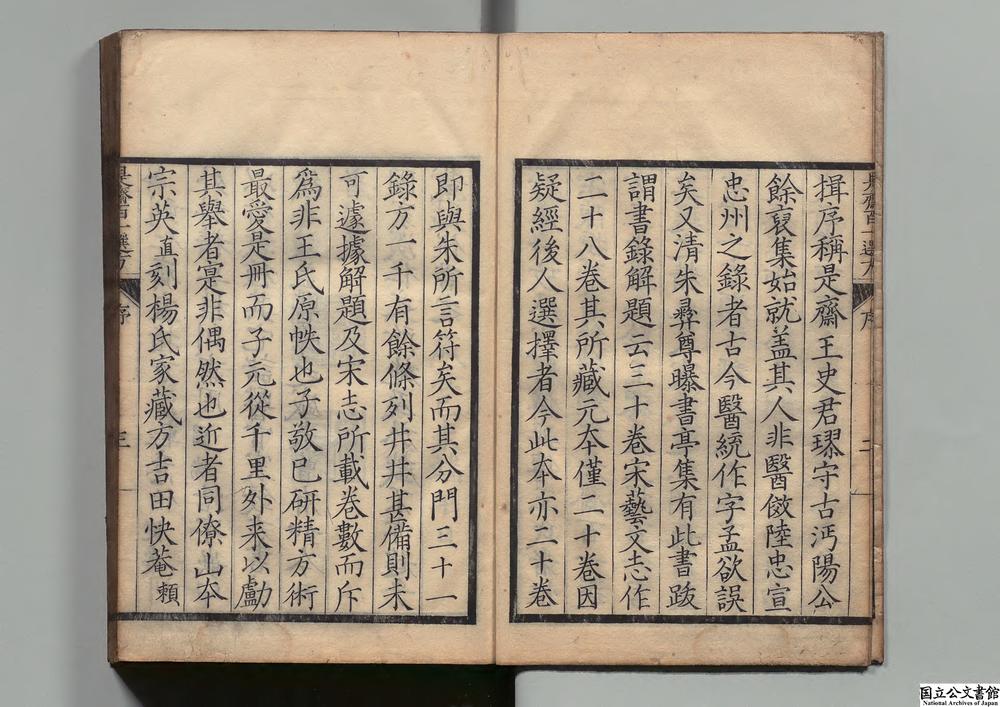 揖序稱是齋王史君璆守古沔陽公
餘裒集始就盖其人非醫倣陸忠宣
忠州之錄者古今醫統作字孟欲誤
矣又清朱彝尊曝書亭集有此書跋
謂書錄解題云三十卷宋藝文志作
二十八卷其所藏元本僅二十卷因
疑經後人選擇者今此本亦二十卷
序
二
即與朱所言符矣而其分門三十一
錄方一千有餘條列井井甚備則未
可遽據解題及宋志所載卷數而斥
爲非王氏原帙也子敬已研精方術
最愛是冊而子元從千里外来以勵
其舉者寔非偶然也近者同僚山本
宗英直刻楊氏家藏方吉田快菴頼
是齋百一選方
序
三
国立公文書館
National Archives of Japan